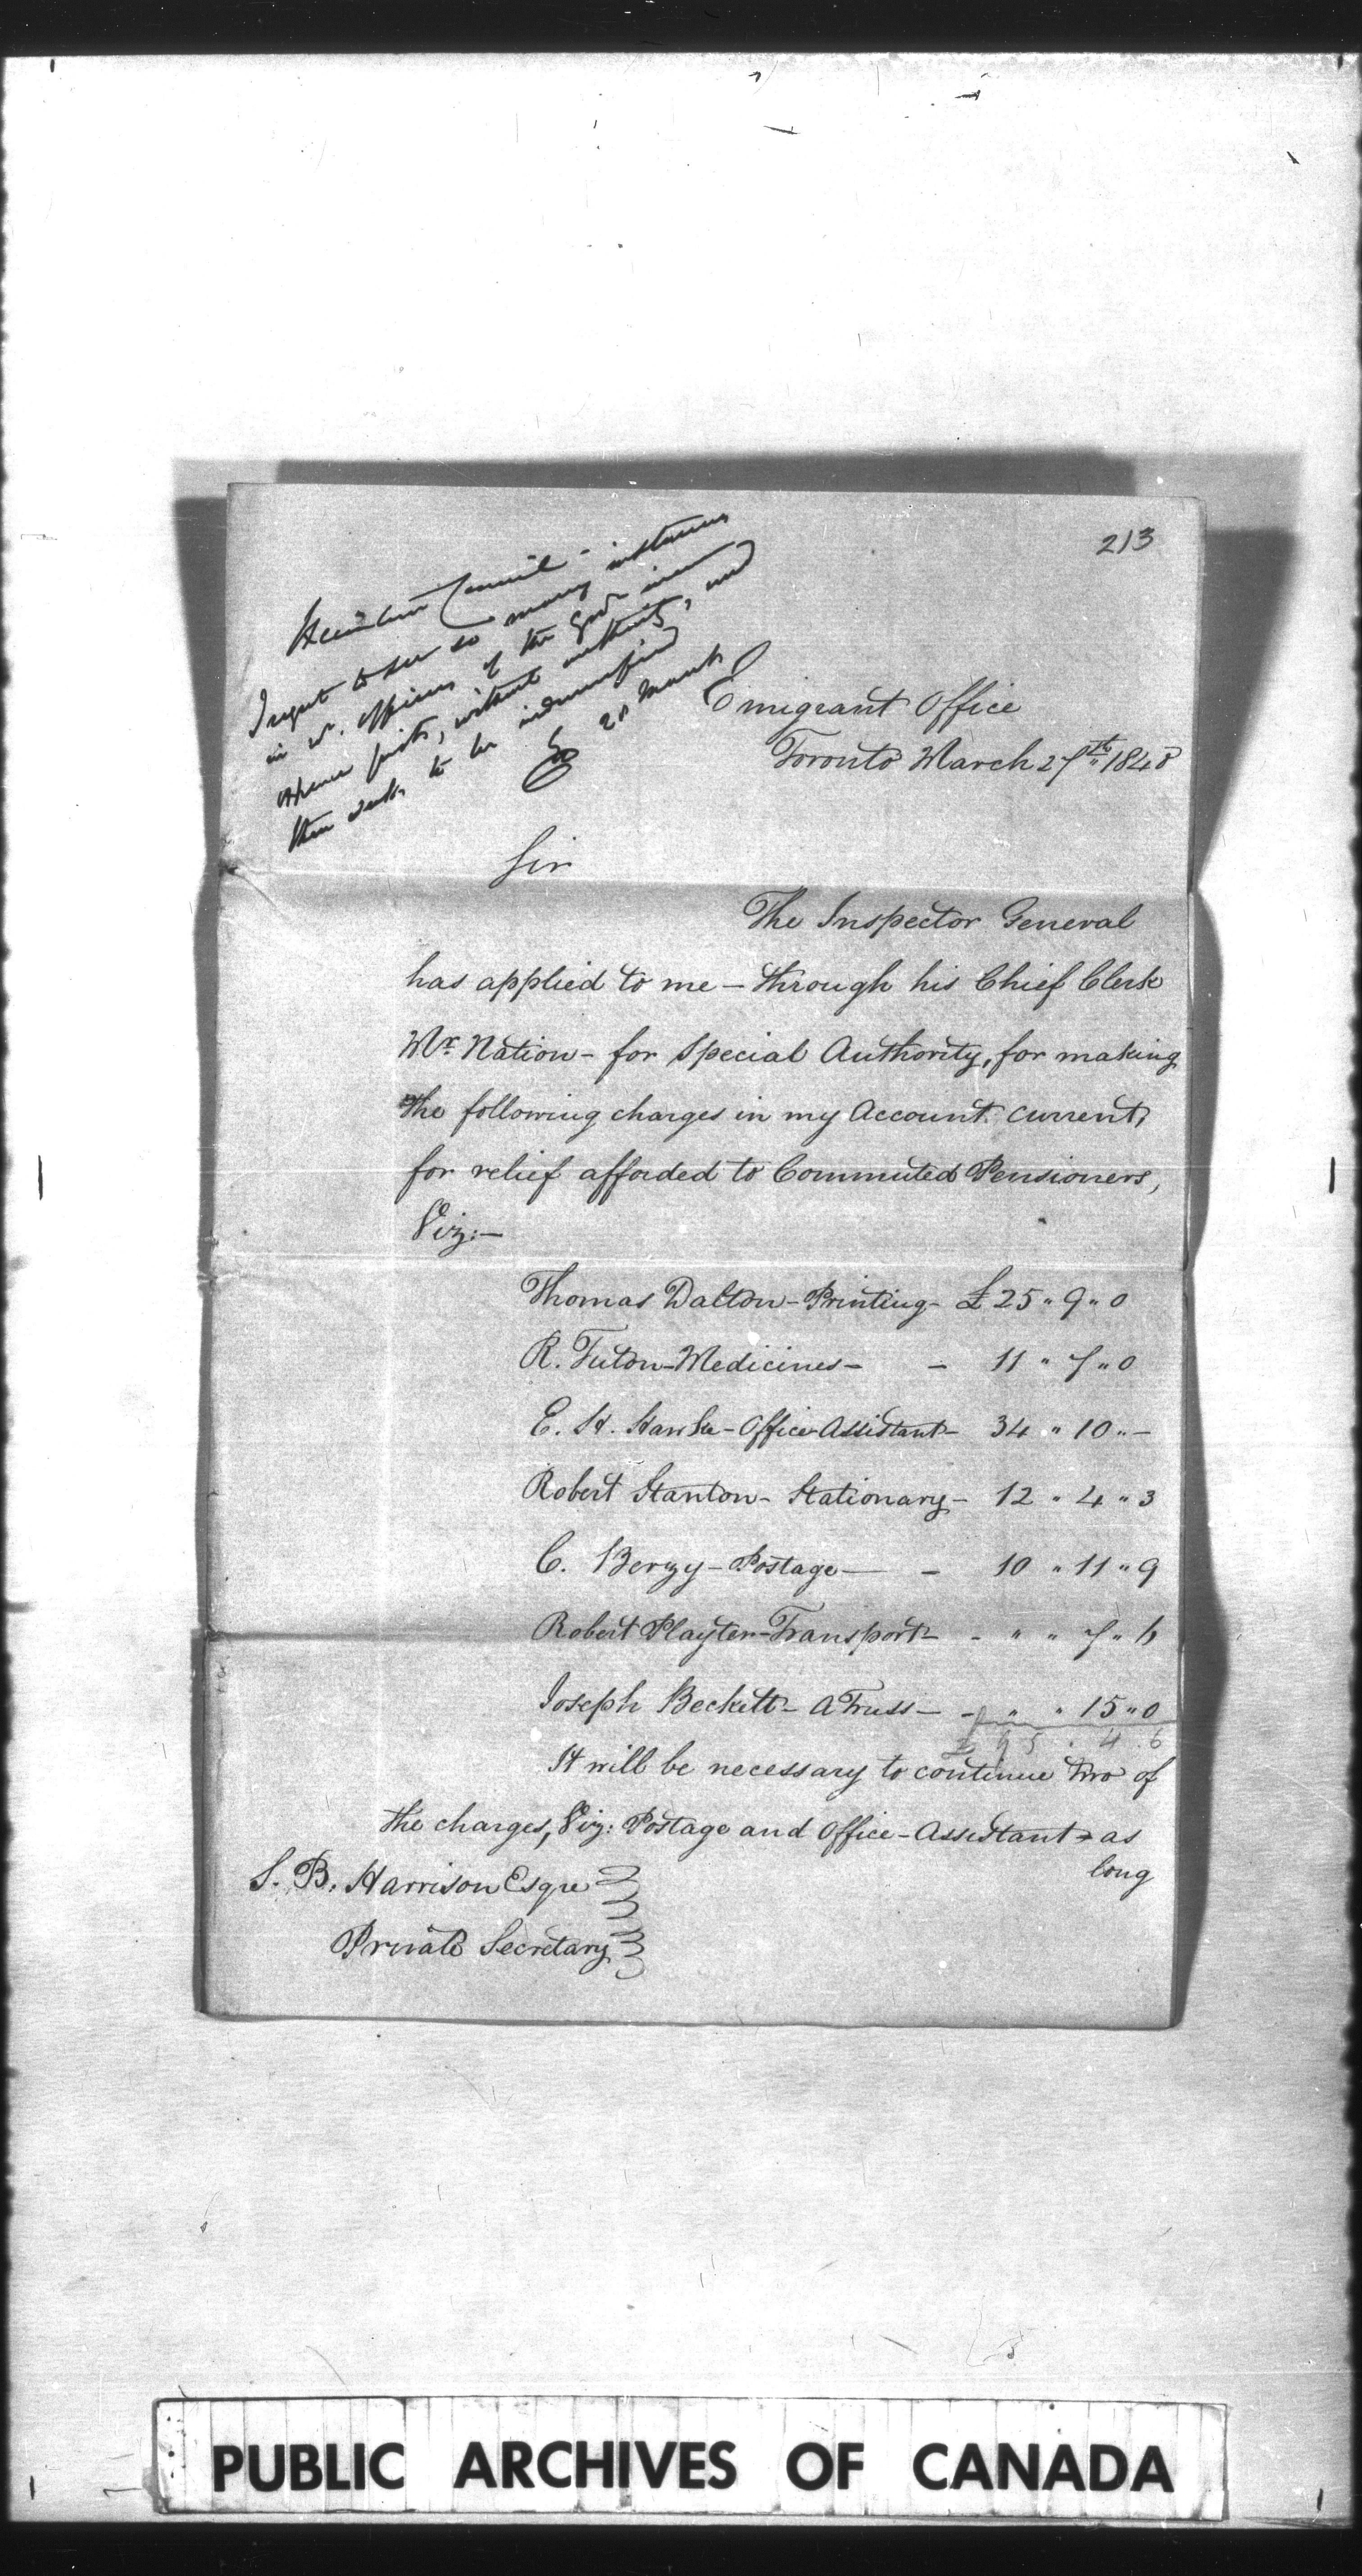 213
Executive Council -
I regret to see so many instances
in wh. officers of the Govt incur
expense first, without authority, and
then seek to be indemnified
28 March
Emigrant Office
Toronto March 27th 1840
Sir
The Inspector General
has applied to me - through his Chief Clerk
Mr. Nation - for Special Authority, for making
the following charges in my Account current,
for relief afforded to Commuted Pensioners,
Viz:-
Thomas Dalton - Printing - £25 " 9 " 0
R. Tuton - Medicines - - 11 " 7 " 0
E. H. Hawke - Office Assistant - 34 " 10 " -
Robert Stanton - Stationary - 12 " 4 " 3
C. Berzy - Postage - - 10 " 11 " 9
Robert Playter - Transport - - " " 7 " 6
Joseph Beckett - A Truss - - " " 15 " 0
£ 95 . 4 . 6
It will be necessary to continue two of
the charges, Viz: Postage and Office-Assistant - as
long
S. B. Harrison Esqre
Private Secretary
PUBLIC ARCHIVES OF CANADA